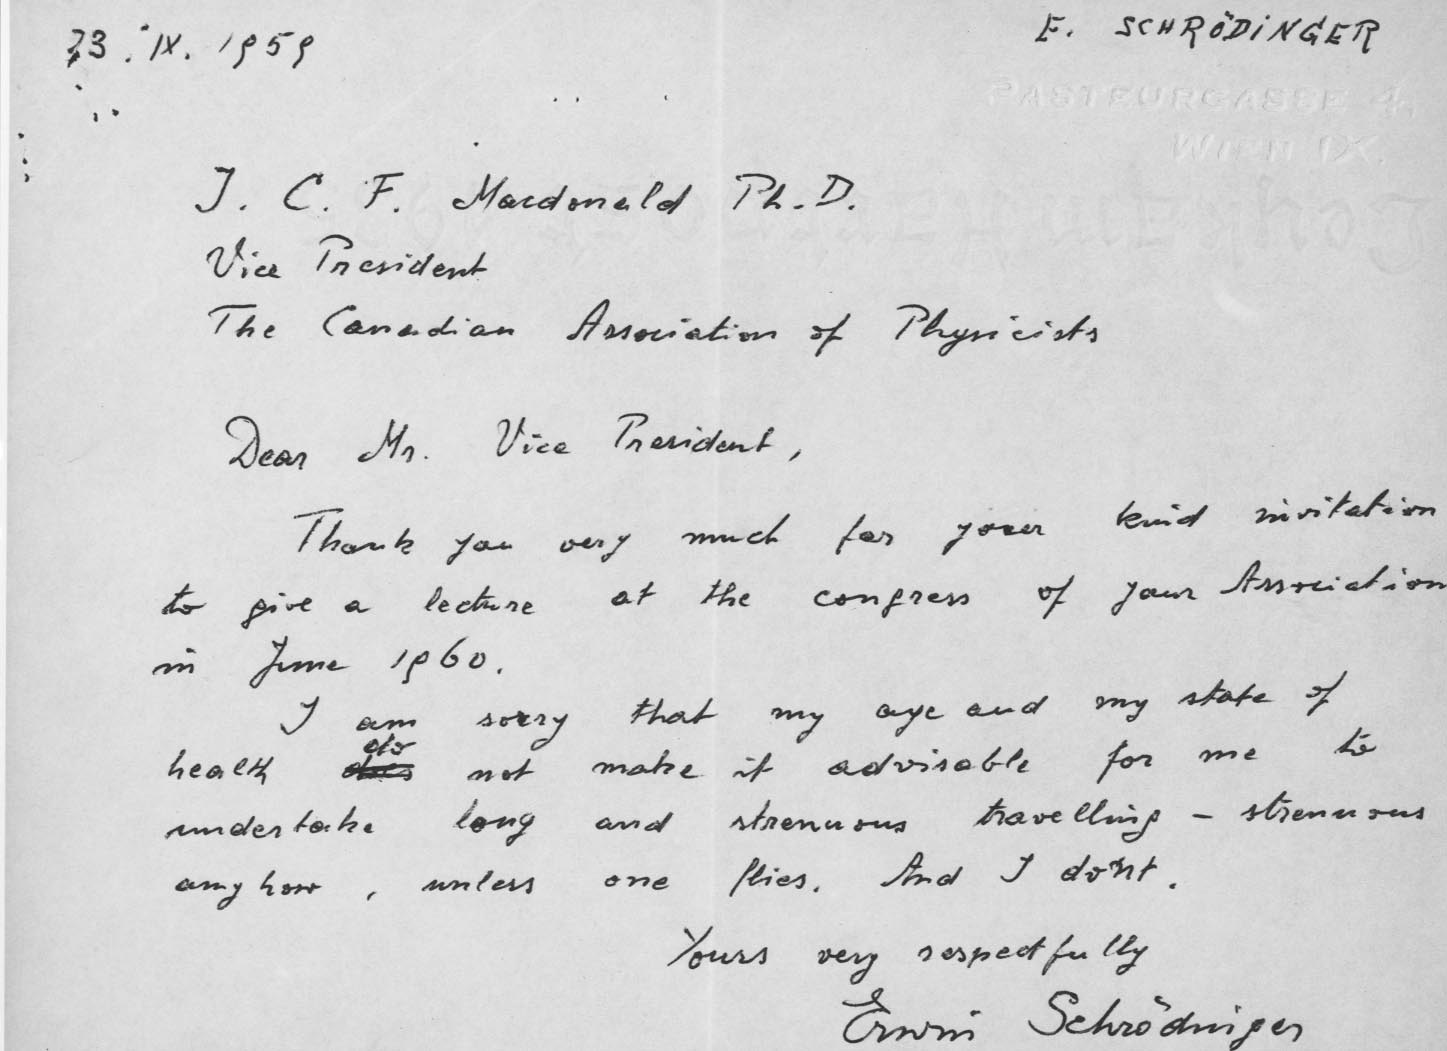 23. IX. 1959
E. SCHRÖDINGER
PASTEURGASSE 4,
WIEN IX.
J. C. F. Macdonald Ph.D.
Vice President
The Canadian Association of Physicists
Dear Mr. Vice President,
Thank you very much for your kind invitation
to give a lecture at the congress of your Association
in June 1960.
I am sorry that my age and my state of
health do not make it advisable for me to
undertake long and strenuous travelling – strenuous
anyhow, unless one flies. And I don't.
Yours very respectfully
Erwin Schrödinger